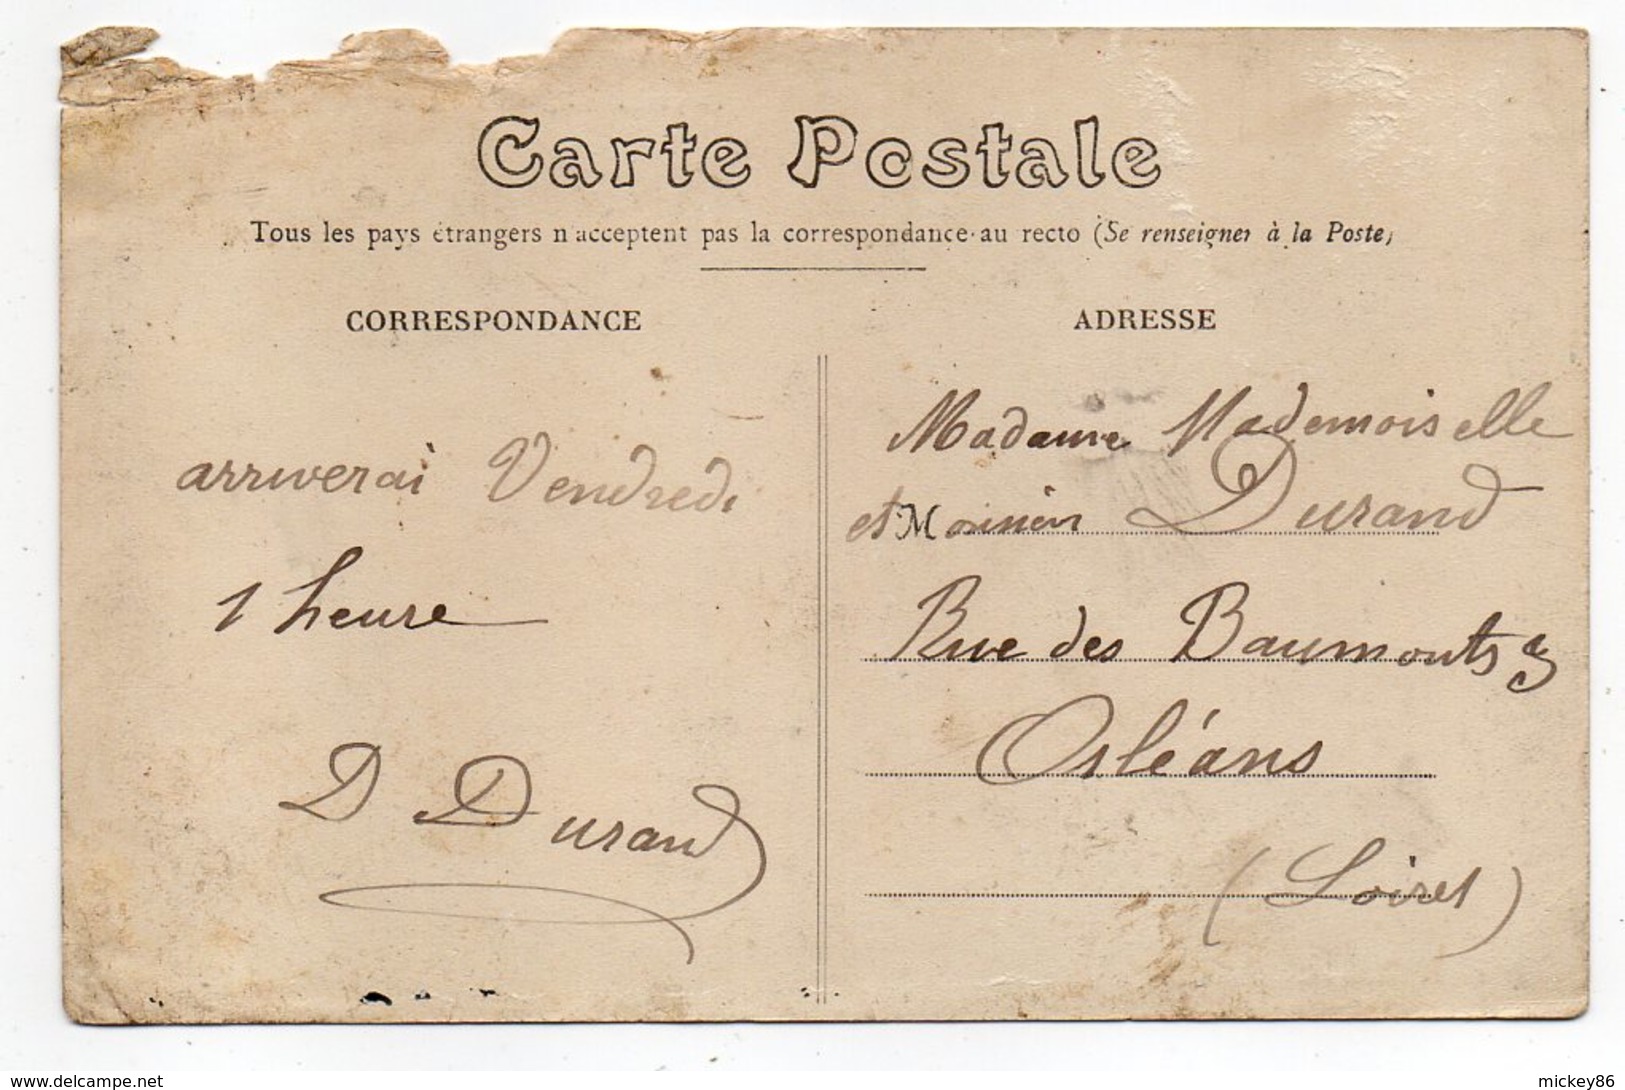 Carte Postale
Tous les pays étrangers n'acceptent pas la correspondance au recto (Se renseigner à la Poste)
CORRESPONDANCE
arriverai Vendredi
1 heure
D Durand
ADRESSE
Madame Mademoiselle
et Monsieur Durand
Rue des Baumonts
Orléans
(Loiret)
www.delcampe.net
mickey86